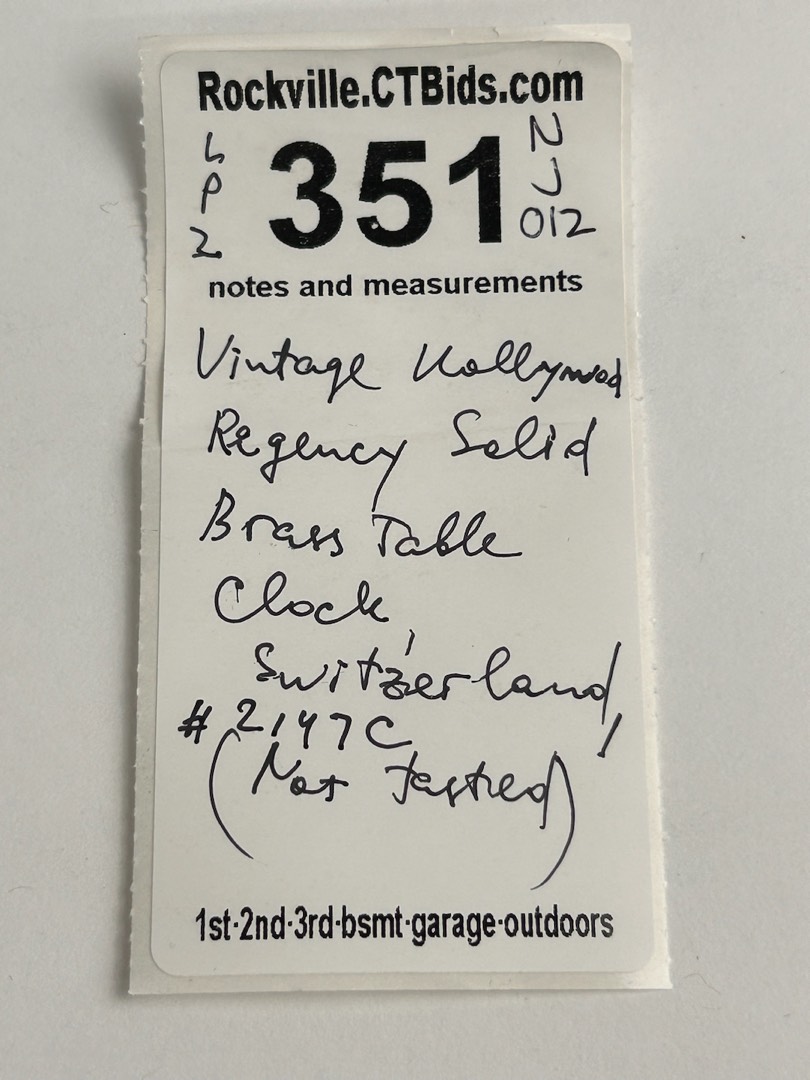 Rockville.CTBids.com
L
P
2
351
N
J
012
notes and measurements
Vintage Hollywood
Regency Solid
Brass Table
Clock,
Switzerland,
# 2147C
(Not tested)
1st·2nd·3rd·bsmt·garage·outdoors